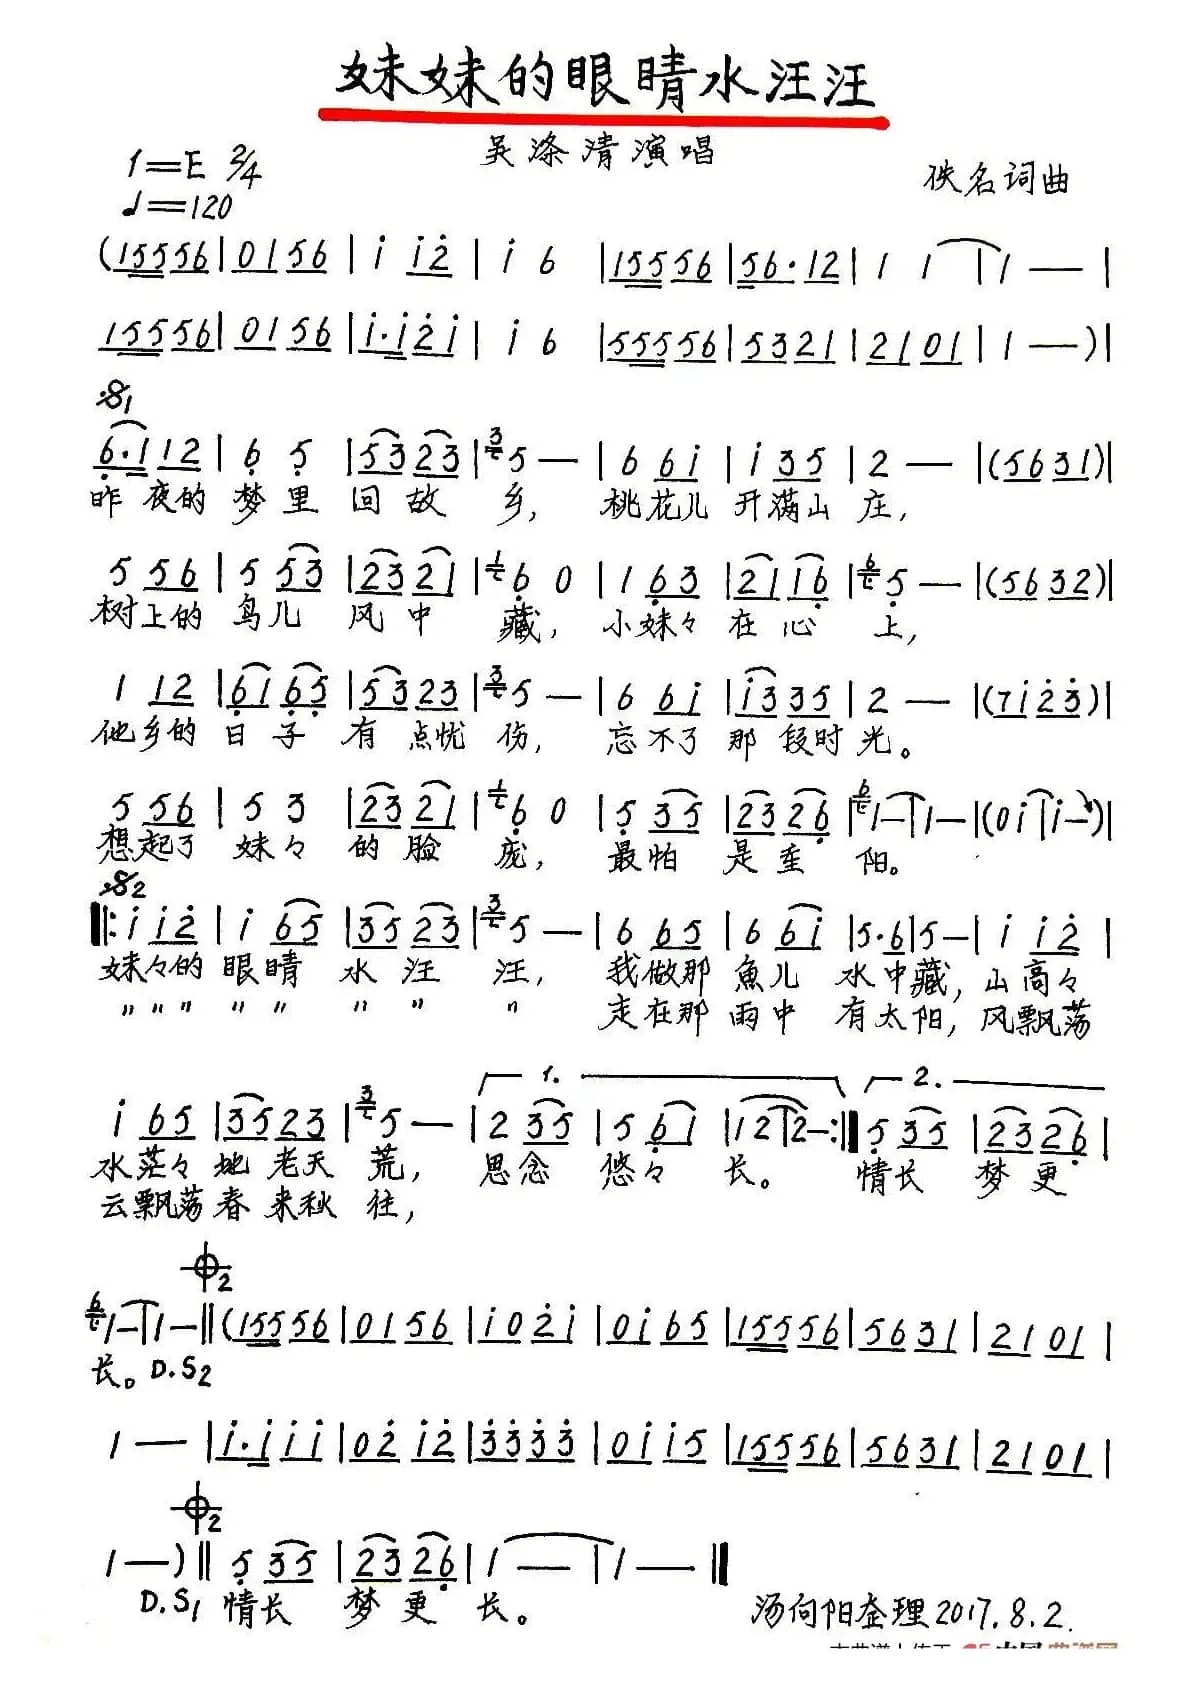 妹妹的眼睛水汪汪
吴涤清演唱
1=E 2/4
佚名词曲
♩=120
(15556|0156|i i2|i 6|15556|56·12|1 1|1 —|
15556|0156|i·i2i|i 6|55556|5321|2101|1 —)|
𝄋1
6·112|6 5|5323|5 —|6 6i|i 35|2 —|(5631)|
昨夜的梦里回故乡,桃花儿开满山庄,
5 56|5 53|2321|6 0|1 63|2116|5 —|(5632)|
树上的鸟儿风中藏,小妹々在心上,
1 12|6165|5323|5 —|6 6i|i335|2 —|(7i23)|
他乡的日子有点忧伤,忘不了那段时光。
5 56|5 3|2321|6 0|5 35|2326|1—|1—|(0i|i—)|
想起了妹々的脸庞,最怕是重阳。
𝄋2
‖:i i2|i 65|3523|5 —|6 65|6 6i|5·6|5—|i i2|
妹々的眼睛水汪汪,我做那魚儿水中藏,山高々
〃〃〃〃〃〃〃〃走在那雨中有太阳,风飘荡
1. 2.
i 65|3523|5—|2 35|5 61|12|2—:‖5 35|2326|
水茫々地老天荒,思念悠々长。情长梦更
云飘荡春来秋往,
𝄌2
1—|1—‖(15556|0156|i02i|0i65|15556|5631|2101|
长。D.S2
1—|i·iii|02i2|3333|0ii5|15556|5631|2101|
𝄌2
1—)‖5 35|2326|1—|1—‖
D.S1 情长梦更长。
汤向阳整理2017.8.2.